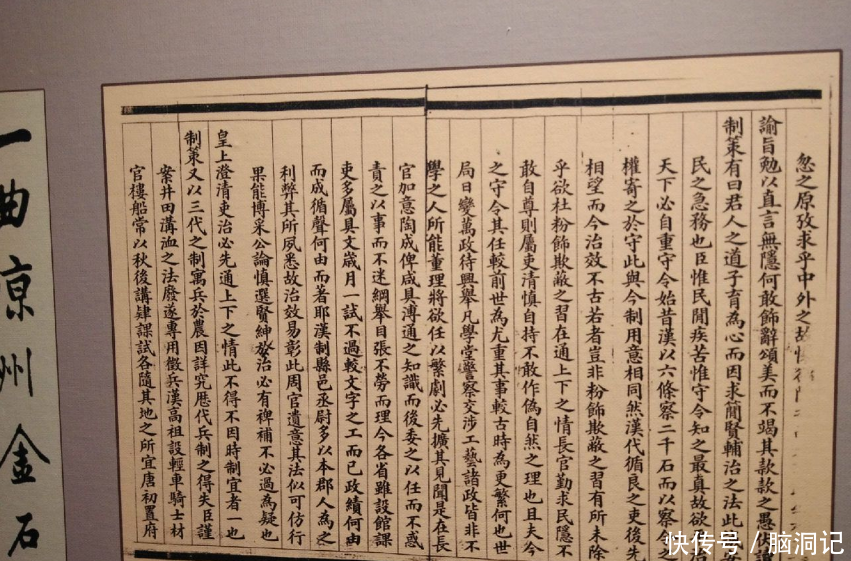 忽之原攷求乎中外之故
諭旨勉以直言無隱何敢飾辭頌美而不竭其款款之愚伏讀
制策有曰君人之道子育為心而因求簡賢輔治之法此
民之急務也臣惟民間疾苦惟守令知之最真故欲
天下必自重守令始昔漢以六條察二千石而以察令之
權寄之於守此與今制用意相同然漢代循良之吏後先
相望而今治效不古若者豈非粉飾欺蔽之習有所未除
乎欲杜粉飾欺蔽之習在通上下之情長官勤求民隱不
敢自尊則屬吏清慎自持不敢作偽自然之理也且夫今
之守令其任較前世為尤重其事較古時為更繁何也世
局日變萬政待興舉凡學堂警察交涉工藝諸政皆非不
學之人所能董理將欲任以繁劇必先擴其見聞是在長
官加意陶成俾咸具溥通之知識而後委之以任而不惑
責之以事而不迷綱舉目張不勞而理今各省雖設館課
吏多屬具文歲月一試不過較文字之工而已政績何由
而成循聲何由而著耶漢制縣邑丞尉多以本郡人為之
利弊其所夙悉故治效易彰此周官遺意其法似可仿行
果能博采公論慎選賢紳於治必有裨補不必過為疑也
皇上澄清吏治必先通上下之情此不得不因時制宜者一也
制策又以三代之制寓兵於農因詳究歷代兵制之得失臣謹
案井田溝洫之法廢遂專用徵兵漢高祖設輕車騎士材
官樓船常以秋後講肄課試各隨其地之所宜唐初置府
一曲凉州金石
快传号／脑洞记